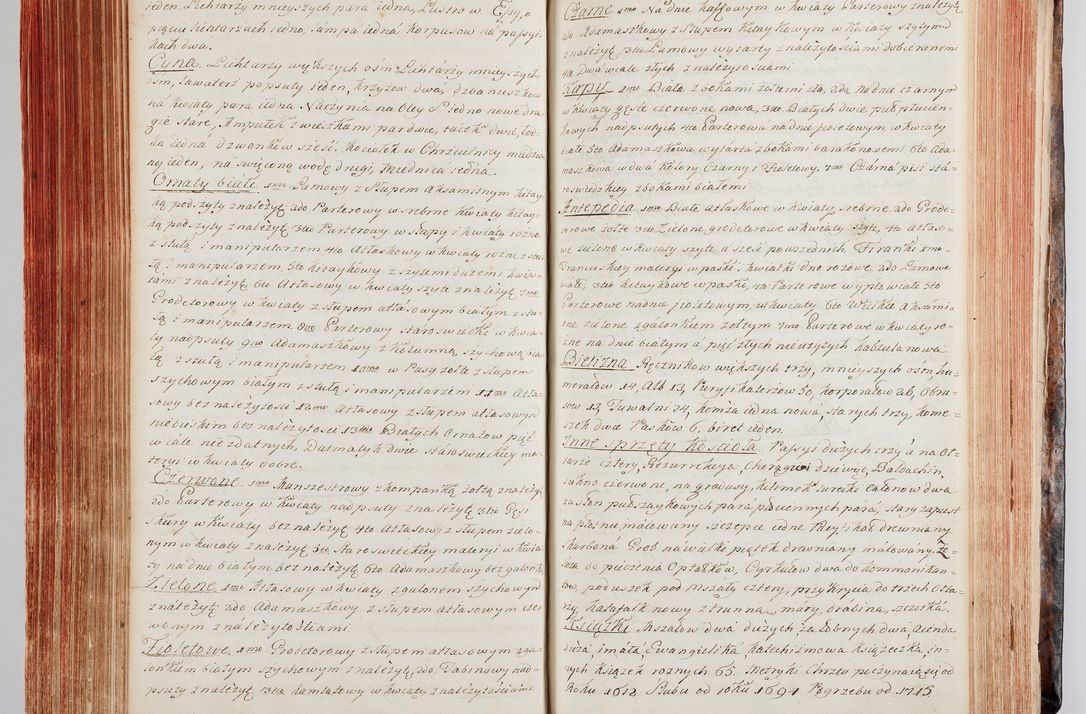 ieden, Lichtarzy mnieyszych para iedna, Lustro w
pięciu lichtarzach iedno, Lampa iedna korpusow na passyi-
kach dwa.
Cyna. Lichtarzy większych ośm Lichtarzy mnieyszych
ośm, Lawaterz popsuty ieden, krzyżow dwa, dzbanuszkow
na kwiaty para iedna Naczynia na Oley S. iedno nowe dru-
gie stare, Ampułek z wieczkami par dwie, tacek dwie, Łod-
ka iedna dzwonkow sześć. Kociołek w Chrzcielnicy miedzia-
ny ieden, na swięconą wodę drugi, Miednica iedna.
Ornaty białe. 1mo Lamowy z Słupem Aksamitnym kitay-
ką podszyty z należyt: 2do Parterowy w srebrne kwiaty kitay-
ką podszyty z należyt: 3tio Parterowy w szapy i kwiaty rożne
z stułą i manipularzem 4to Atłaskowy w kwiaty rożne z stu-
łą i manipularzem. 5to kitaykowy z szytemi dużemi kwia-
tami z należyt: 6to Atłasowy w kwiaty szyte z należyt: 7mo
Grodetorowy w kwiaty z słupem atłasowym białym z stu-
łą i manipularzem. 8vo Parterowy staroswiecki w kwia-
ty nadpsuty 9no Adamaszkowy z kolumną szychową bia-
łą z stułą i manipularzem 10mo w Pasy żołte z słupem
szychowym białym z stułą i manipularzem 11mo Atła-
sowy bez należytości 12mo Atłasowy z słupem atłasowym
niebieskim bez należytości 13tio Białych Ornatow pięć
w cale nie zdatnych, Dalmatyk dwie staroswieckiey ma-
teryi w kwiaty dobre.
Czerwone. 1mo Manszestrowy z kompanką żołtą z należyt:
2do Parterowy w kwiaty nadpsuty z należyt: 3tio Gęsi
skory w kwiaty bez należyt: 4to Atłasowy z słupem zielo-
nym w kwiaty z należyt: 5to Staroswieckiey materyi w kwia-
ty na dnie białym bez należyt: 6to Adamaszkowy bez galonk:
Zielone 1mo Atłasowy w kwiaty z galonem szychowym
z należyt: 2do Adamaszkowy z słupem atłasowym czer-
wonym z należytościami.
Fioletowe. 1mo Grodetorowy z słupem atłasowym z ga-
lonkiem białym szychowym z należyt: 2do Tabinowy nad-
psuty z należyt: 3tio kamlatowy w kwiaty z należytościami
Czarne 1mo Na dnie kaffowym w kwiaty Parterowy z należyt:
2do Adamaszkowy z słupem kitaykowym w kwiaty szytym
z należyt: 3tio Lamowy wytarty z należytościami dobieranemi
4to Dwa wcale złych z należytościami
Kapy 1mo Biała z bokami żołtemi zła, 2da na dnie czarnym
w kwiaty gęste czerwone nowa, 3tio Białych dwie pułpłucien-
kowych nadpsutych 4to Parterowa na dnie fioletowym w kwiaty
białe, 5to Adamaszkowa wytarta z bokami barakanowemi 6to Ada-
maszkowa w dwa kolory Czarny i Fioletowy. 7mo Czarna pisi sta-
roswieckiey z bokami białemi
Antepedia 1mo Białe Atłaskowe w kwiaty srebrne, 2do Grode-
torowe żołte 3tio Zielone grodetorowe w kwiaty szyte, 4to Atłaso-
we zielone w kwiaty szyte, a sześć powszednich, Firanki 1mo
Francuskiey materyi w paski i kwiatki dno rożowe, 2do Lamowe
białe, 3tio kitaykowe w paski, 4to Parterowe wypłowiałe 5to
Parterowe na dnie fioletowym, w kwiaty, 6to Wielkie Aksami-
tne zielone z galonkiem żołtym 7mo Parterowe w kwiaty ro-
żne na dnie białym a pięć złych nieużyżych kabzula nowa
Bielizna Ręcznikow większych trzy, mnieyszych ośm hu-
merałow 14, Alb 13, Puryfikaterzow 50, korporałow 26, Obru-
sow 12, Tuwalni 24, komża iedna nowa, starych trzy, kome-
szek dwie Paskow 6, biret ieden.
Inne sprzęty Kościoła Passyi dużych trzy a na Oł-
tarze cztery, Rezurrekcya, Chorągwi dziewięć, Baldachin,
sukno czerwone, na gradusy, kilimek turecki Całunow dwa
zasłon pułszaykowych para płuciennych para, stary zapust
na płutnie malowany szczepce iedne Reyfikał drewniany
skarbona Grob na wielki piątek drewniany malowany. Że-
laza do pieczenia Opłatkow, Cyrkułow dwa do kommonikan-
tow, poduszek pod mszały cztery, przykrycia do trzech Ołta-
rzy, Katafalk nowy z trunna, mary, drabina, szczotka.
Książki Mszałow dwa dużych, żałobnych dwa, Aienda
duża i mała, Ewangieliki, katechizmowa książeczka, in-
nych książek rożnych 65. Metryki Chrztu poczynaią się od
Roku 1612 Slubu od roku 1694 Pogrzebu od 1715